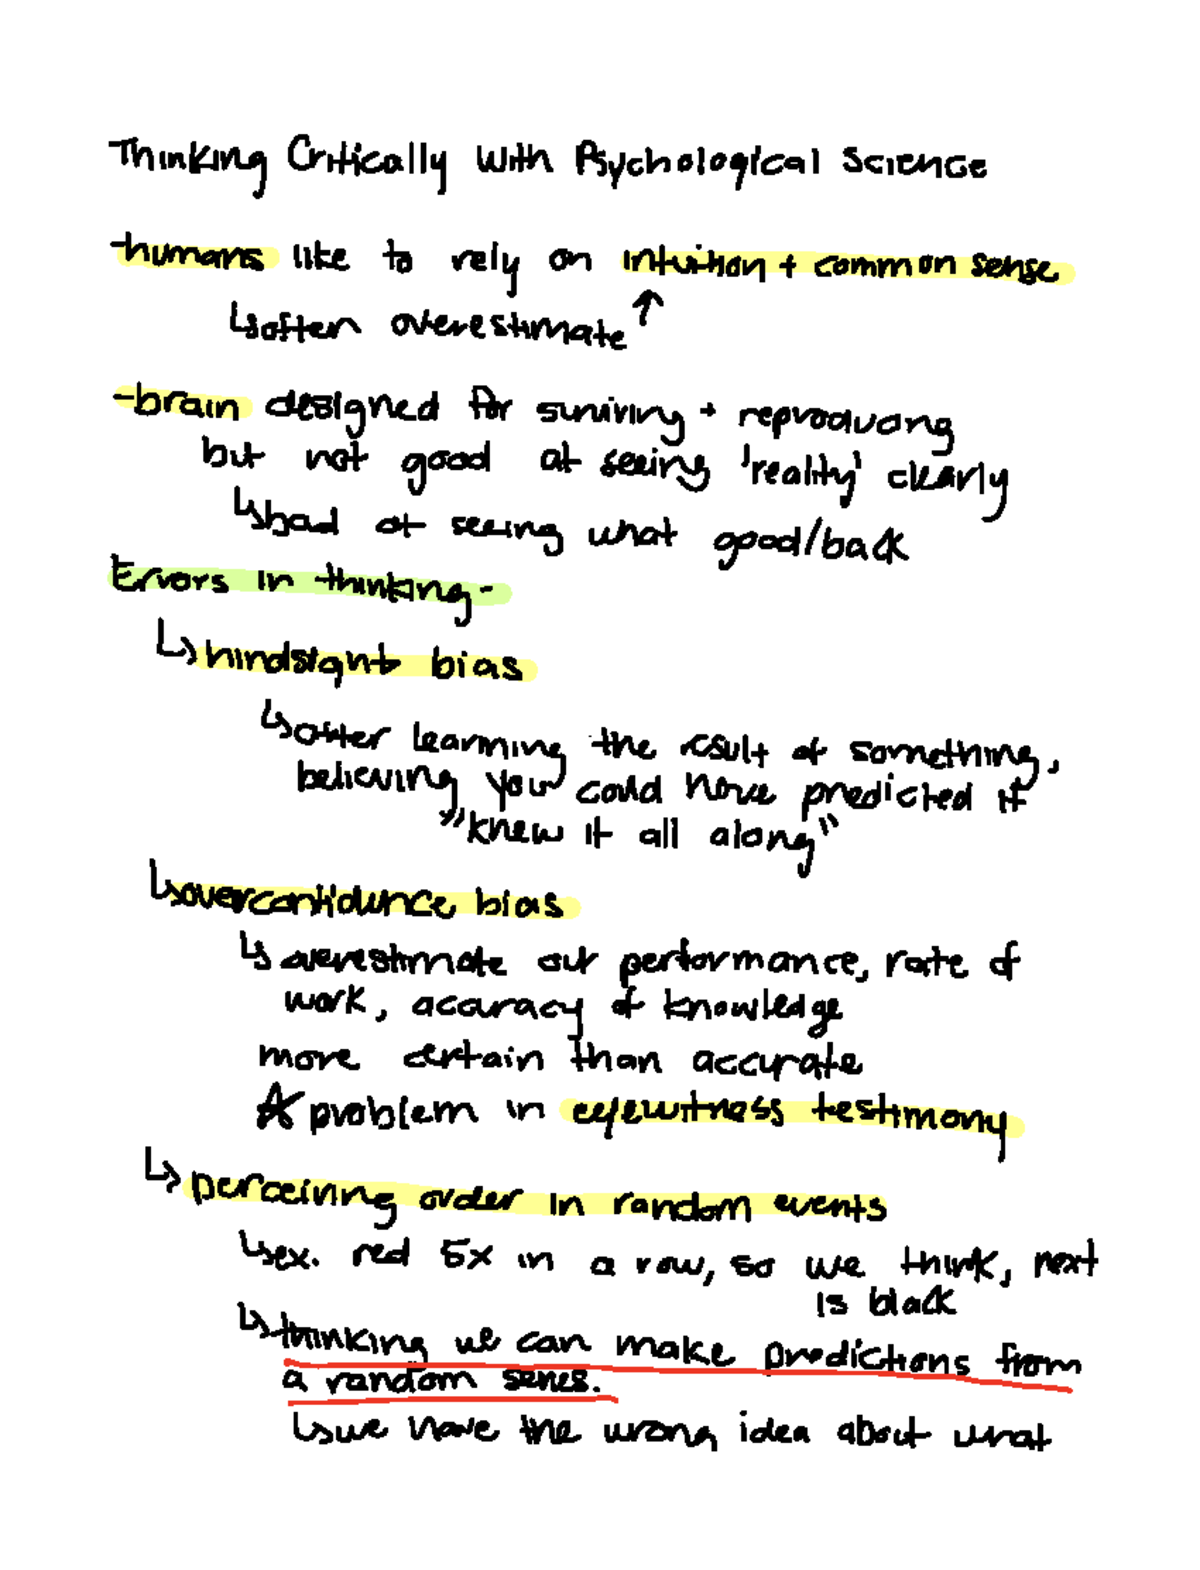 Thinking Critically With Psychological Science
-humans like to rely on intuition + common sense
↳often overestimate ↑
-brain designed for surviving + reproducing
but not good at seeing 'reality' clearly
↳bad at seeing what good/back
Errors in thinking-
↳hindsight bias
↳after learning the result of something,
believing you could have predicted it
"knew it all along"
↳overconfidence bias
↳overestimate our performance, rate of
work, accuracy of knowledge
more certain than accurate
☆problem in eyewitness testimony
↳perceiving order in random events
↳ex. red 5x in a row, so we think, next
is black
↳thinking we can make predictions from
a random series.
↳we have the wrong idea about what